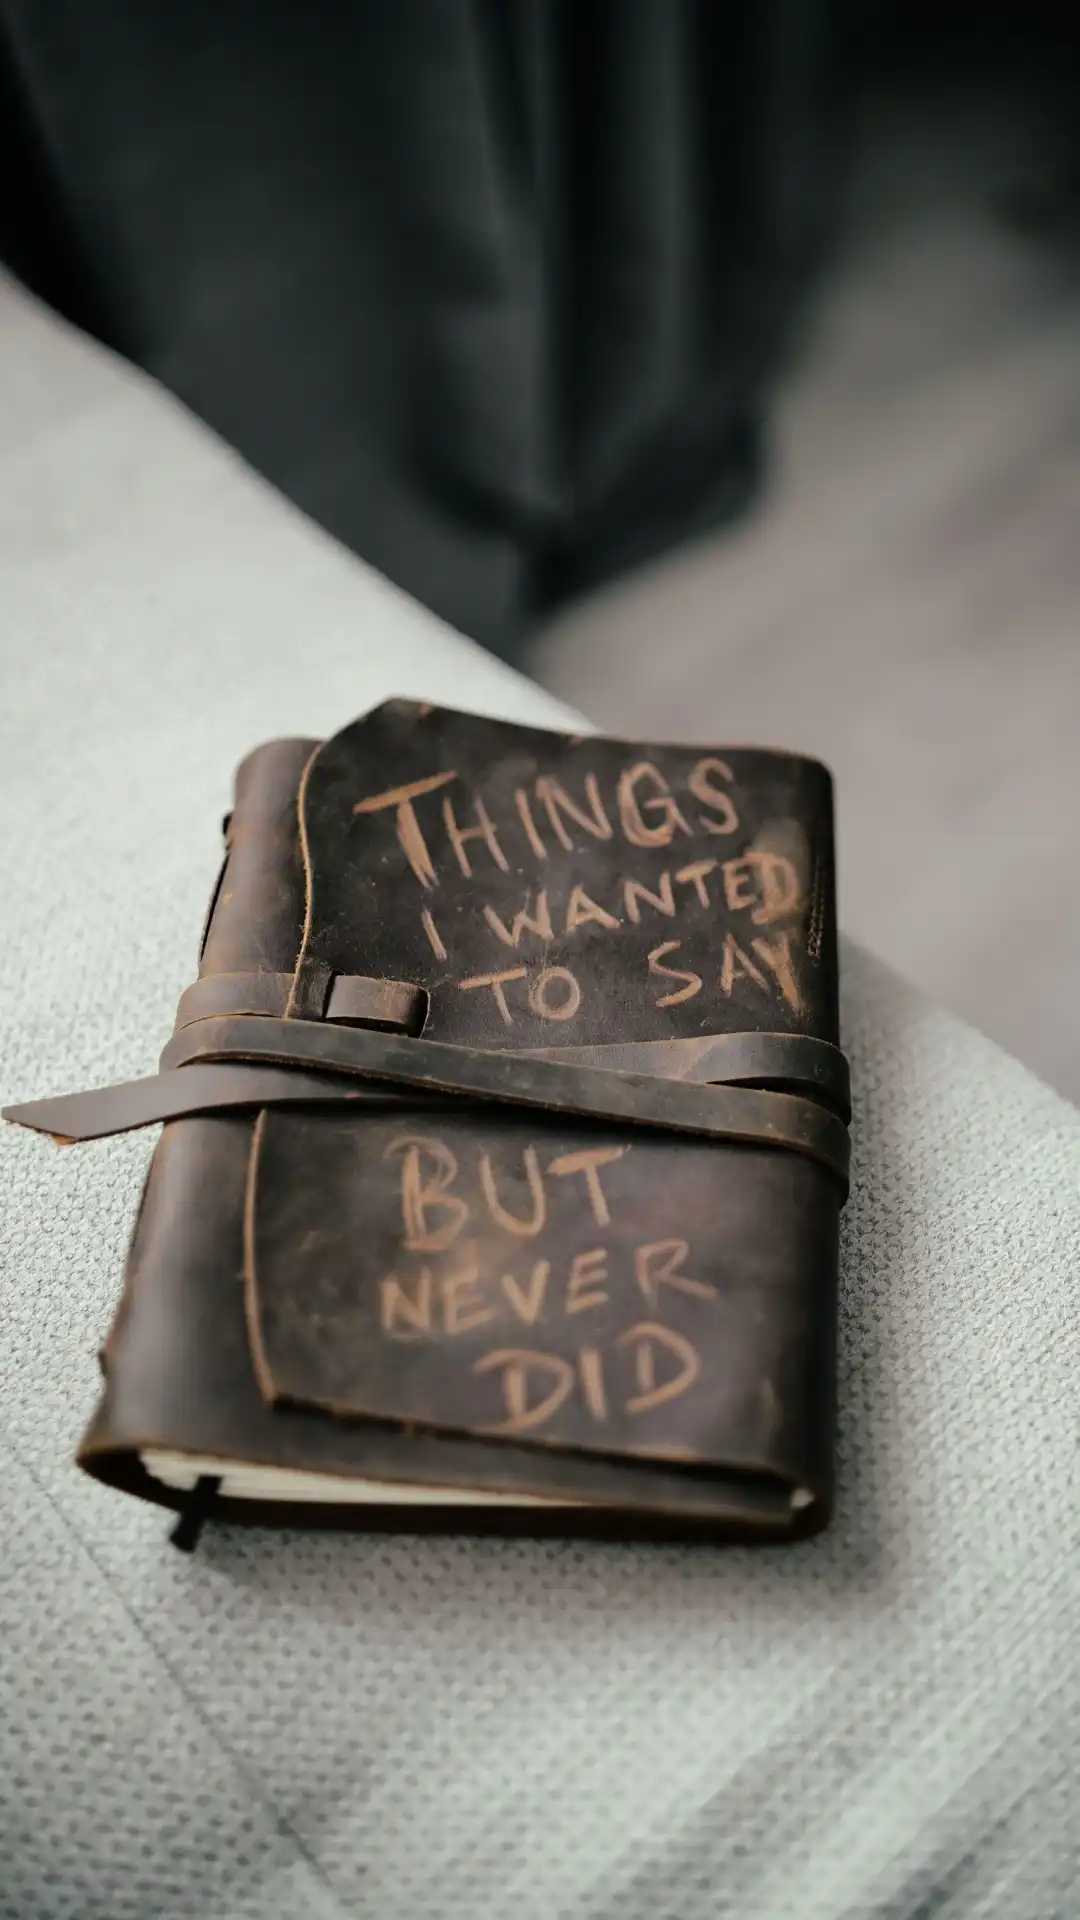 THINGS
I WANTED
TO SAY
BUT
NEVER
DID